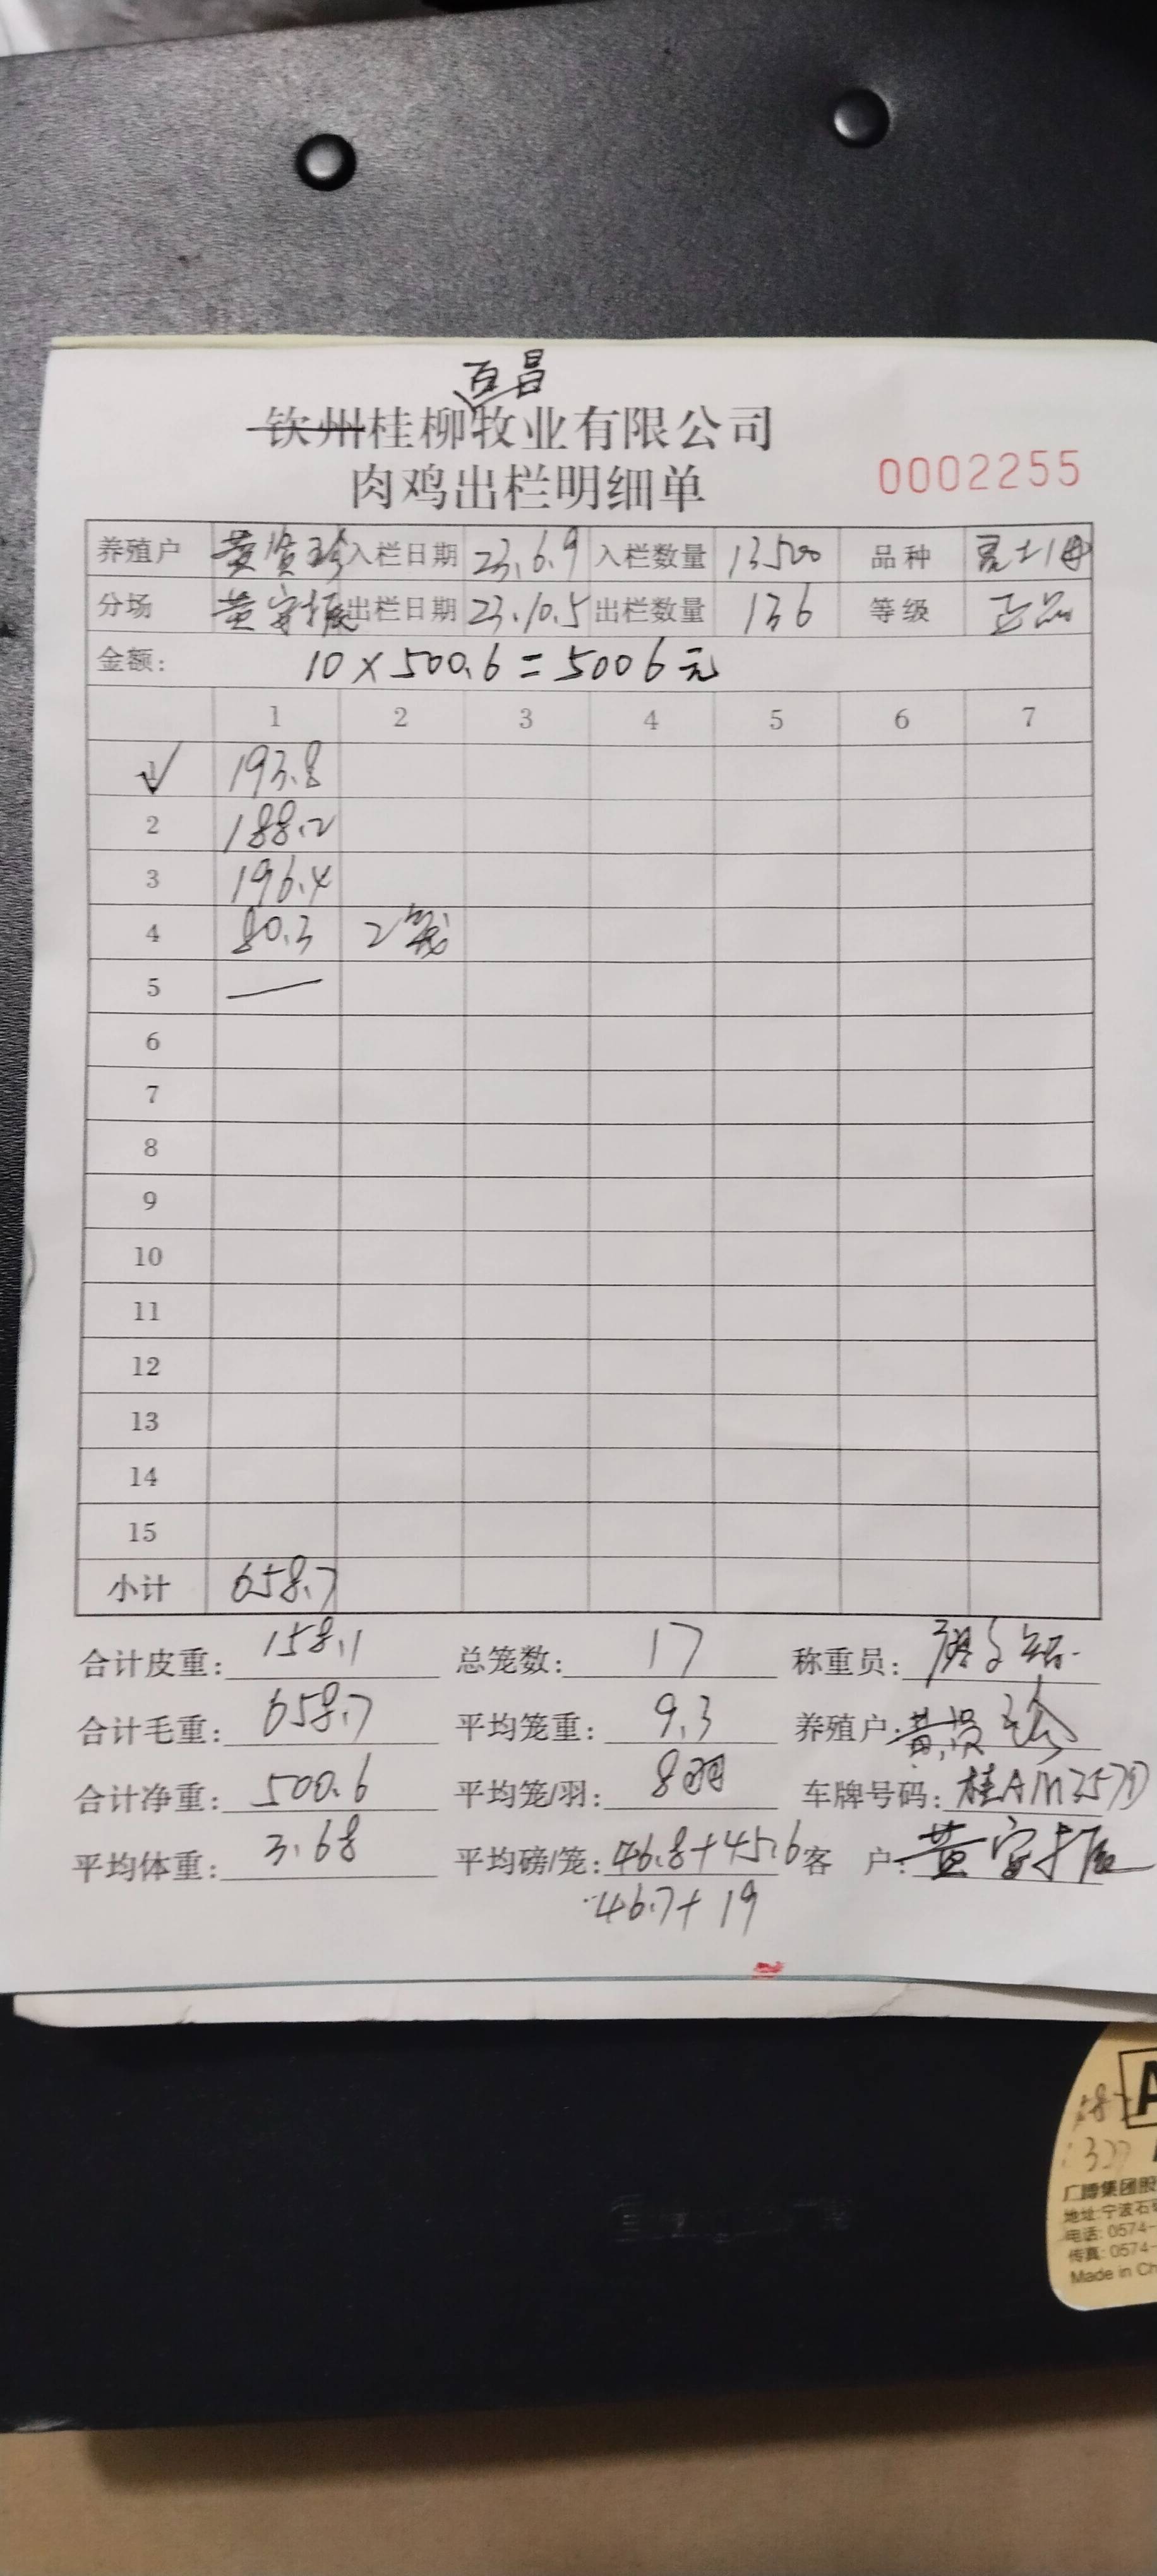 百昌
钦州桂柳牧业有限公司
肉鸡出栏明细单 0002255
养殖户 黄 入栏日期 23.6.9 入栏数量 13500 品种
分场 黄 出栏日期 23.10.5 出栏数量 136 等级 正品
金额: 10×500.6=5006元
1 2 3 4 5 6 7
1 193.8
2 188.2
3 196.4
4 80.3 2
5 —
6
7
8
9
10
11
12
13
14
15
小计 658.7
合计皮重: 158.1 总笼数: 17 称重员:
合计毛重: 658.7 平均笼重: 9.3 养殖户: 黄
合计净重: 500.6 平均笼/羽: 8羽 车牌号码: 桂A
平均体重: 3.68 平均磅/笼: 46.8+45.6 客 户: 黄
46.7+19
A
广博集团股
地址:宁波石
电话: 0574-
传真: 0574-
Made in Ch